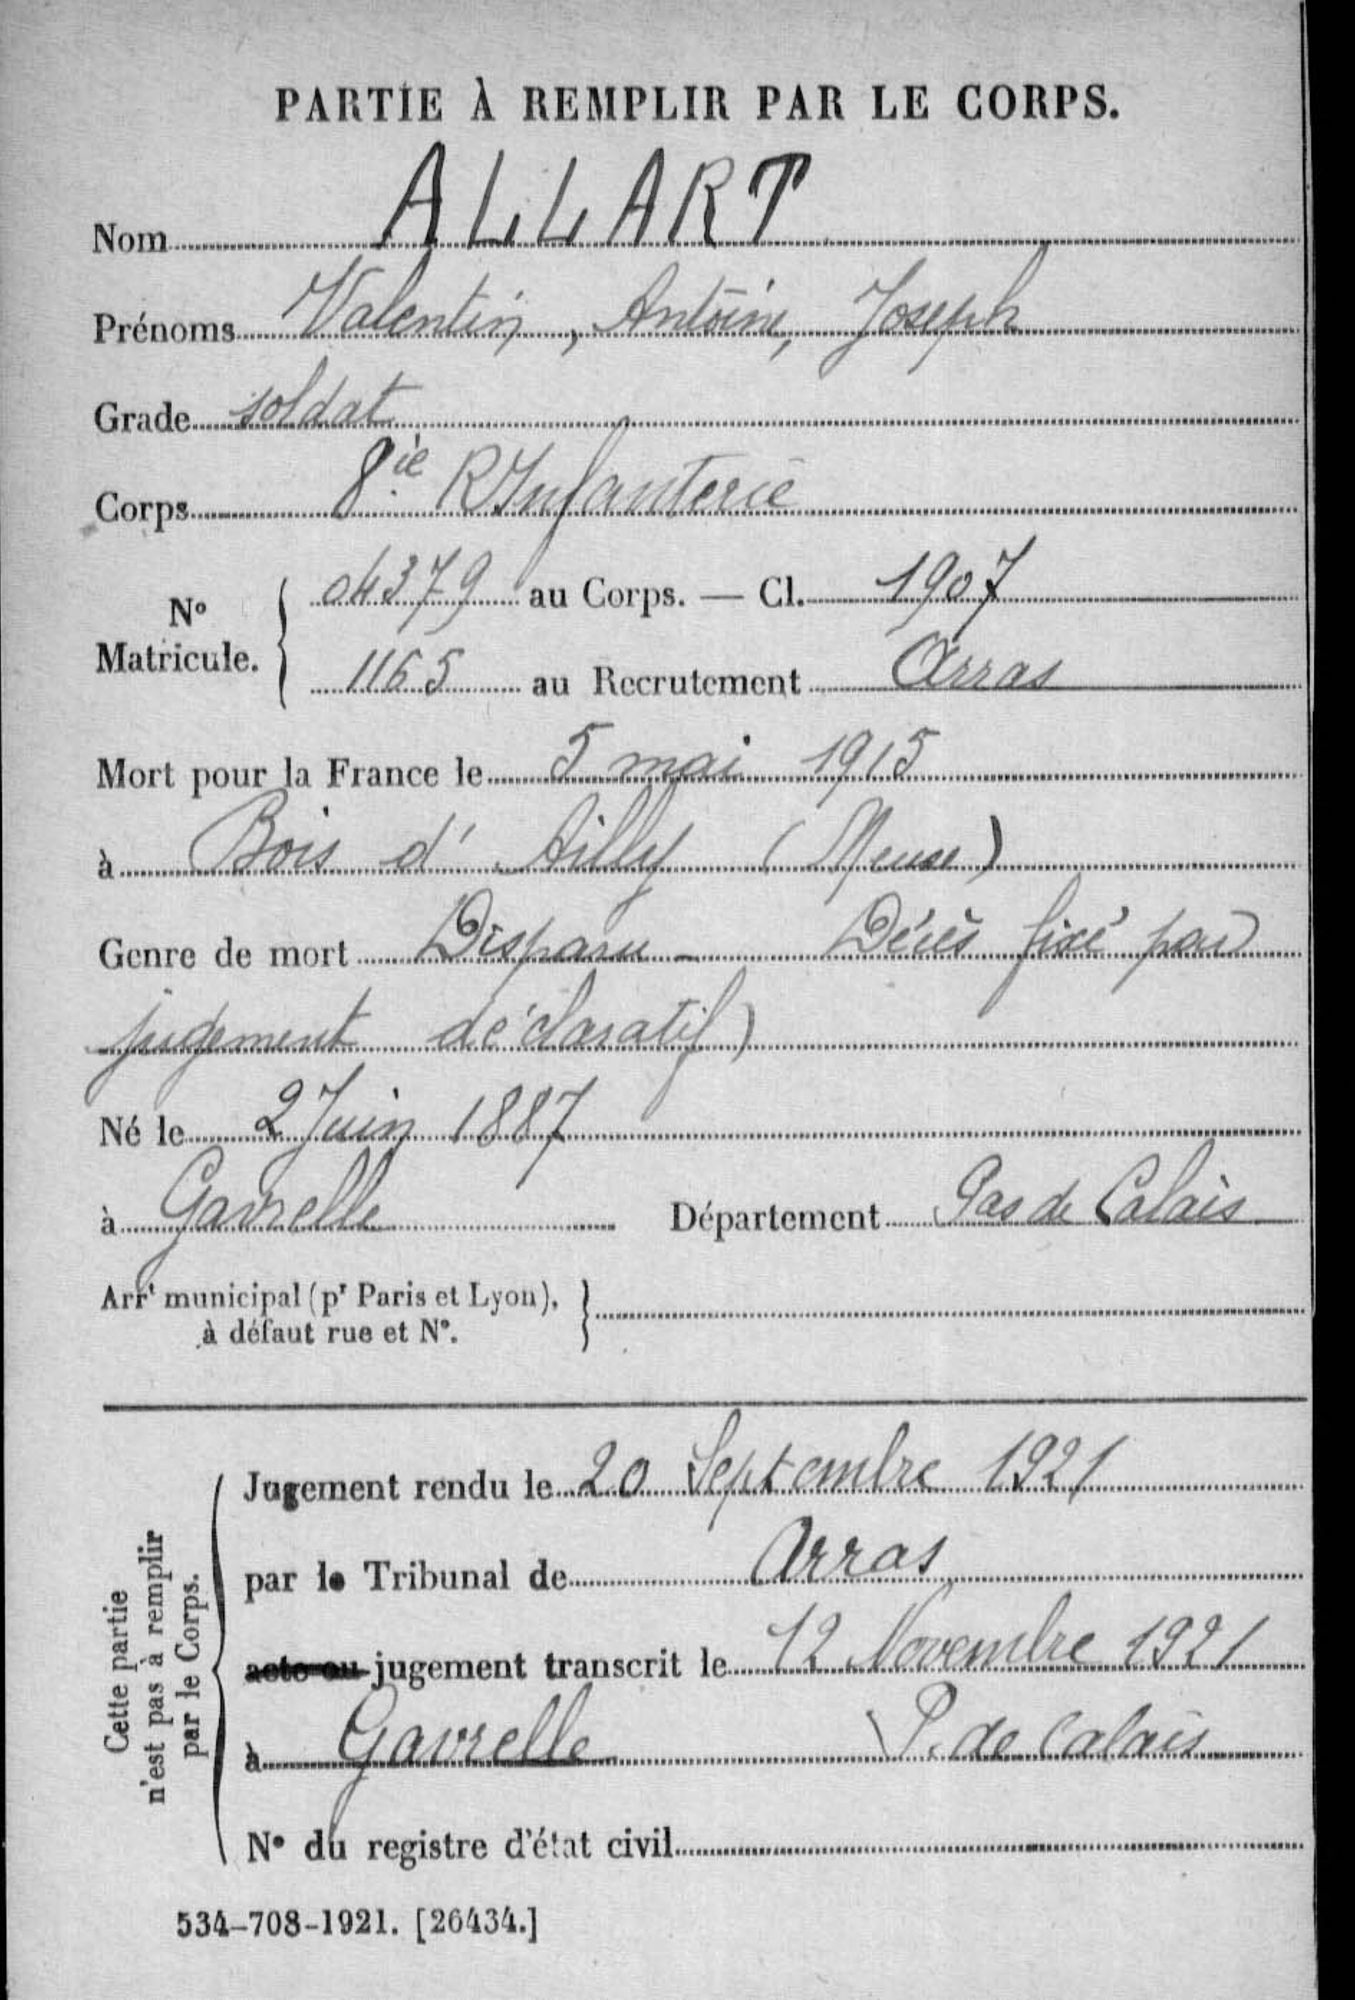 PARTIE À REMPLIR PAR LE CORPS.
Nom ALLART
Prénoms Valentin, Antoine, Joseph
Grade soldat
Corps 8ie R Infanterie
No Matricule. { 04379 au Corps. — Cl. 1907
1165 au Recrutement Arras
Mort pour la France le 5 mai 1915
à Bois d'Ailly (Meuse)
Genre de mort Disparu - Décès fixé par
jugement déclaratif)
Né le 2 Juin 1887
à Gavrelle Département Pas de Calais
Arrt municipal (pr Paris et Lyon), }
à défaut rue et No.
Cette partie
n'est pas à remplir
par le Corps.
Jugement rendu le 20 Septembre 1921
par le Tribunal de Arras
acte ou jugement transcrit le 12 Novembre 1921
à Gavrelle P. de Calais
No du registre d'état civil
534-708-1921. [26434.]